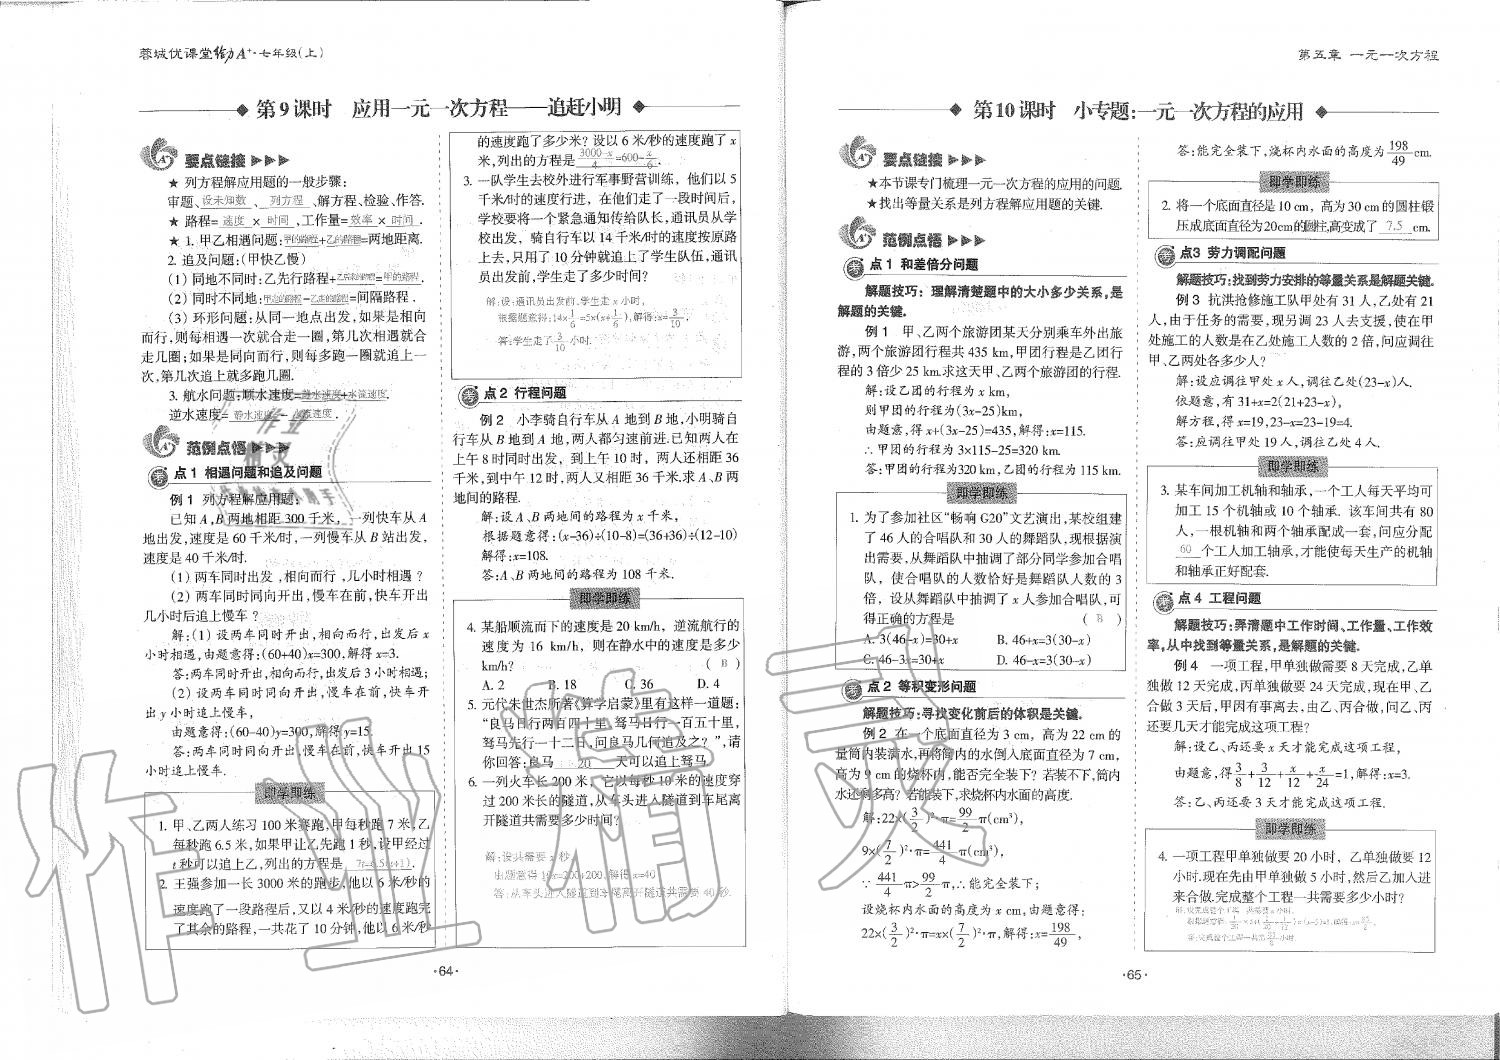 蓉城优课堂给力A+·七年级(上)
第9课时 应用一元一次方程——追赶小明
要点链接
★ 列方程解应用题的一般步骤:
审题、设未知数、列方程、解方程、检验、作答.
★ 路程=速度×时间,工作量=效率×时间.
★ 1. 甲乙相遇问题:甲的路程+乙的路程=两地距离.
2. 追及问题:(甲快乙慢)
(1)同地不同时:乙先行路程+乙后来的路程=甲的路程.
(2)同时不同地:甲走的路程-乙走的路程=间隔路程.
(3)环形问题:从同一地点出发,如果是相向
而行,则每相遇一次就合走一圈,第几次相遇就合
走几圈;如果是同向而行,则每多跑一圈就追上一
次,第几次追上就多跑几圈.
3. 航水问题:顺水速度=静水速度+水流速度.
逆水速度=静水速度-水流速度.
范例点悟
点1 相遇问题和追及问题
例1 列方程解应用题:
已知A,B两地相距300千米,一列快车从A
地出发,速度是60千米/时,一列慢车从B站出发,
速度是40千米/时.
(1)两车同时出发,相向而行,几小时相遇?
(2)两车同时同向开出,慢车在前,快车开出
几小时后追上慢车?
解:(1)设两车同时开出,相向而行,出发后x
小时相遇,由题意得:(60+40)x=300,解得x=3.
答:两车同时开出,相向而行,出发后3小时相遇;
(2)设两车同时同向开出,慢车在前,快车开
出y小时追上慢车,
由题意得:(60-40)y=300,解得y=15.
答:两车同时同向开出,慢车在前,快车开出15
小时追上慢车.
即学即练
1. 甲、乙两人练习100米赛跑,甲每秒跑7米,乙
每秒跑6.5米,如果甲让乙先跑1秒,设甲经过
t秒可以追上乙,列出的方程是 7t=6.5(t+1).
2. 王强参加一长3000米的跑步,他以6米/秒的
速度跑了一段路程后,又以4米/秒的速度跑完
了其余的路程,一共花了10分钟,他以6米/秒
的速度跑了多少米?设以6米/秒的速度跑了x
米,列出的方程是 (3000-x)/4=600-x/6.
3. 一队学生去校外进行军事野营训练,他们以5
千米/时的速度行进,在他们走了一段时间后,
学校要将一个紧急通知传给队长,通讯员从学
校出发,骑自行车以14千米/时的速度按原路
上去,只用了10分钟就追上了学生队伍,通讯
员出发前,学生走了多少时间?
解:设:通讯员出发前,学生走x小时,
根据题意得:14×1/6=5×(x+1/6),解得:x=3/10.
答:学生走了3/10小时.
点2 行程问题
例2 小李骑自行车从A地到B地,小明骑自
行车从B地到A地,两人都匀速前进.已知两人在
上午8时同时出发,到上午10时,两人还相距36
千米,到中午12时,两人又相距36千米.求A、B两
地间的路程.
解:设A、B两地间的路程为x千米,
根据题意得:(x-36)÷(10-8)=(36+36)÷(12-10)
解得:x=108.
答:A、B两地间的路程为108千米.
即学即练
4. 某船顺流而下的速度是20 km/h,逆流航行的
速度为16 km/h,则在静水中的速度是多少
km/h? ( B )
A. 2 B. 18 C. 36 D. 4
5. 元代朱世杰所著《算学启蒙》里有这样一道题:
“良马日行两百四十里,驽马日行一百五十里,
驽马先行一十二日,问良马几何追及之?”,请
你回答:良马 20 天可以追上驽马.
6. 一列火车长200米,它以每秒10米的速度穿
过200米长的隧道,从车头进入隧道到车尾离
开隧道共需要多少时间?
解:设共需要x秒,
由题意得10x=200+200,解得x=40
答:从车头进入隧道到车尾离开隧道共需要40秒.
·64·
第五章 一元一次方程
第10课时 小专题:一元一次方程的应用
要点链接
★本节课专门梳理一元一次方程的应用的问题.
★找出等量关系是列方程解应用题的关键.
范例点悟
点1 和差倍分问题
解题技巧:理解清楚题中的大小多少关系,是
解题的关键.
例1 甲、乙两个旅游团某天分别乘车外出旅
游,两个旅游团行程共435 km,甲团行程是乙团行
程的3倍少25 km.求这天甲、乙两个旅游团的行程.
解:设乙团的行程为x km,
则甲团的行程为(3x-25)km,
由题意,得x+(3x-25)=435,解得:x=115.
∴甲团的行程为3×115-25=320 km.
答:甲团的行程为320 km,乙团的行程为115 km.
即学即练
1. 为了参加社区“畅响G20”文艺演出,某校组建
了46人的合唱队和30人的舞蹈队,现根据演
出需要,从舞蹈队中抽调了部分同学参加合唱
队,使合唱队的人数恰好是舞蹈队人数的3
倍,设从舞蹈队中抽调了x人参加合唱队,可
得正确的方程是 ( B )
A. 3(46-x)=30+x B. 46+x=3(30-x)
C. 46-3x=30+x D. 46-x=3(30-x)
点2 等积变形问题
解题技巧:寻找变化前后的体积是关键.
例2 在一个底面直径为3 cm,高为22 cm的
量筒内装满水,再将筒内的水倒入底面直径为7 cm,
高为9 cm的烧杯内,能否完全装下?若装不下,筒内
水还剩多高?若能装下,求烧杯内水面的高度.
解:22×(3/2)²·π=99/2 π(cm³),
9×(7/2)²·π=441/4 π(cm³),
∵441/4 π>99/2 π,∴能完全装下;
设烧杯内水面的高度为x cm,由题意得:
22×(3/2)²·π=x×(7/2)²·π,解得:x=198/49,
答:能完全装下,烧杯内水面的高度为198/49 cm.
即学即练
2. 将一个底面直径是10 cm,高为30 cm的圆柱锻
压成底面直径为20cm的圆柱,高变成了 7.5 cm.
点3 劳力调配问题
解题技巧:找到劳力安排的等量关系是解题关键.
例3 抗洪抢修施工队甲处有31人,乙处有21
人,由于任务的需要,现另调23人去支援,使在甲
处施工的人数是在乙处施工人数的2倍,问应调往
甲、乙两处各多少人?
解:设应调往甲处x人,调往乙处(23-x)人.
依题意,有31+x=2(21+23-x),
解方程,得x=19,23-x=23-19=4.
答:应调往甲处19人,调往乙处4人.
即学即练
3. 某车间加工机轴和轴承,一个工人每天平均可
加工15个机轴或10个轴承.该车间共有80
人,一根机轴和两个轴承配成一套,问应分配
60 个工人加工轴承,才能使每天生产的机轴
和轴承正好配套.
点4 工程问题
解题技巧:弄清题中工作时间、工作量、工作效
率,从中找到等量关系,是解题的关键.
例4 一项工程,甲单独做需要8天完成,乙单
独做12天完成,丙单独做要24天完成,现在甲、乙
合做3天后,甲因有事离去,由乙、丙合做,问乙、丙
还要几天才能完成这项工程?
解:设乙、丙还要x天才能完成这项工程,
由题意,得3/8+3/12+x/12+x/24=1,解得:x=3.
答:乙、丙还要3天才能完成这项工程.
即学即练
4. 一项工程甲单独做要20小时,乙单独做要12
小时.现在先由甲单独做5小时,然后乙加入进
来合做.完成整个工程一共需要多少小时?
·65·
作业精灵